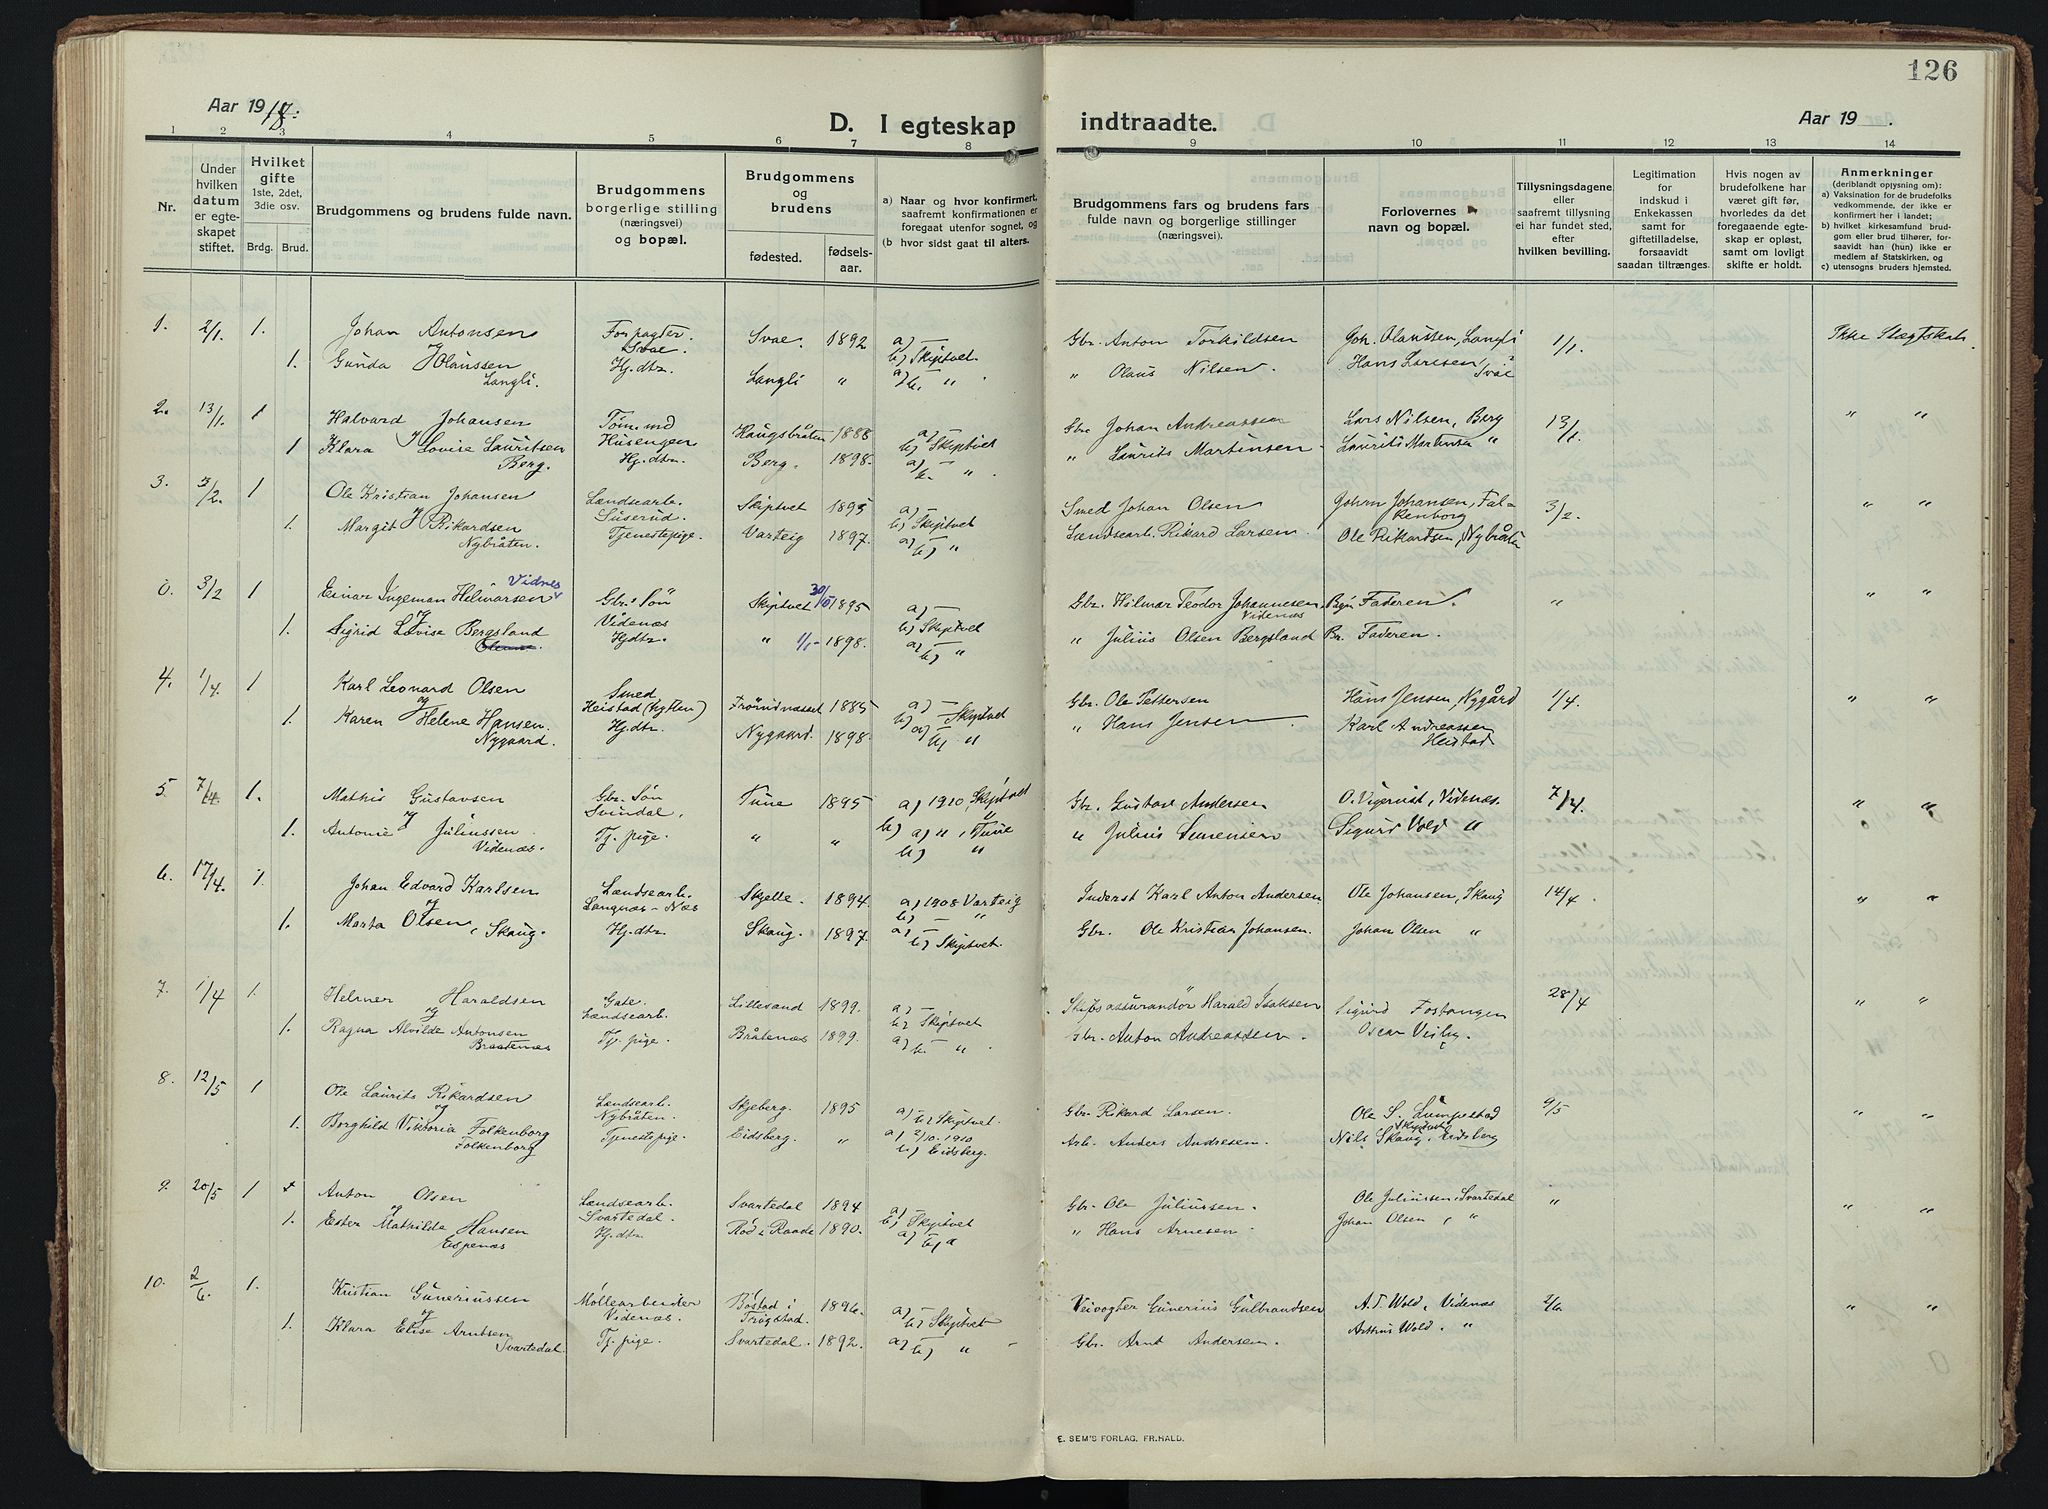 126
Aar 1918.
D. I egteskap indtraadte.
Aar 19 .
1 2 3 4 5 6 7 8 9 10 11 12 13 14
Nr.
Under hvilken datum er egteskapet stiftet.
Hvilket gifte 1ste, 2det, 3die osv.
Brdg. Brud.
Brudgommens og brudens fulde navn.
Brudgommens borgerlige stilling (næringsvei) og bopæl.
Brudgommens og brudens
fødested.
fødselsaar.
a) Naar og hvor konfirmert, saafremt konfirmationen er foregaat utenfor sognet, og
(b hvor sidst gaat til alters.
Brudgommens fars og brudens fars fulde navn og borgerlige stillinger (næringsvei).
Forlovernes navn og bopæl.
Tillysningsdagene eller saafremt tillysning ei har fundet sted, efter hvilken bevilling.
Legitimation for indskud i Enkekassen samt for giftetilladelse, forsaavidt saadan tiltrænges.
Hvis nogen av brudefolkene har været gift før, hvorledes da det foregaaende egteskap er opløst, samt om lovligt skifte er holdt.
Anmerkninger (deriblandt opjysning om):
a) Vaksination for de brudefolks vedkommende, der ikke er konfirmert her i landet;
b) hvilket kirkesamfund brudgom eller brud tilhører, forsaavidt han (hun) ikke er medlem af Statskirken, og
c) utensogns bruders hjemsted.
1. 2/1 1. Johan Antonsen Forpagter Svae. Svae 1892 a) — b) Skiptvet Gbr. Anton Torkildsen Joh. Olaussen, Langli 1/1. Ikke Slægtskab
og
1. Gunda Olaussen Langli. Hj. dtr. Langli " a) — b. " " Olaus Nilsen. Hans Larssen, Svae
2. 13/1 1 Halvard Johansen Tøm.md Husengen Haugsbråten 1888 a) — b) Skiptvet Gbr. Johan Andreassen Lars Nilsen, Berg 13/1. " "
og
1 Klara Lovise Lauritsen Berg. Hj. dtr. Berg. 1898. a) — b. " " Laurits Martinsen Laurits Martinsen "
3. 3/2 1 Ole Kristian Johansen Landsearb. Suserud. Skiptvet 1895 a) — b) Skiptvet Smed Johan Olsen Johan Johansen, Falkenborg 3/2. " "
og
1. Margit Rikardsen Nybråten. Tjenestepige. Varteig 1897. a) — b) " Landsearb. Rikard Larsen. Ole Rikardsen, Nybråten
0. 3/2 1 Einar Ingeman Hilmarsen Vidnes Gbr. Søn Videnæs Skiptvet 30/5 1895 a) — b) Skiptvet Gbr. Hilmar Teodor Johannesen, Videnæs Bgm Faderen. " " "
og
1. Sigrid Lovise Bergsland Hj.dtr. " 1/1- 1898. a) — b) " " Julius Olsen Bergsland Br. Faderen.
4. 1/4. 1 Karl Leonard Olsen Smed Heistad (Hytten) 1885 a) — b) Skiptvet Gbr. Ole Pettersen Hans Jensen, Nygård 1/4 " "
og
1. Karen Helene Hansen. Nygaard. Hj.dtr. Nygaard. 1898. a) — b) " " Hans Jensen Karl Andreassen Heistad
5. 7/4 1. Mathis Gustavsen Gbr. Søn Svindal. Tune 1895 a) 1910, Skiptvet b) " Gbr. Gustav Andersen O. Vigerust, Videnæs. 7/4. " "
og
1. Antonie Juliussen Videnæs. Tj. pige. " " a) ", Tune b) " " Julius Simensen Sigurd Vold "
6. 17/4. 1. Johan Edvard Karlsen Landsearb. Langnæs - Næs Skjelle. 1894. a) 1908 Varteig b) — " Inderst Karl Anton Andersen Ole Johansen, Skaug 14/4 " "
og
1. Marta Olsen, Skaug. Hj. dtr. Skaug. 1897. a) — b) Skiptvet. Gbr. Ole Kristian Johansen. Johan Olsen "
7. 1/4 1. Helmer Haraldsen Gate. Landsearb. Lillesand 1899. a) — b) Skiptvet Skibsassurandør Harald Isaksen Sigurd Fostangen 28/4 " "
og
1. Ragna Alvilde Antonsen Braatenæs Tj. pige. Bråtenæs 1899. a) — b. " Gbr. Anton Andreassen. Oscar Visby.
8. 12/5 1 Ole Laurits Rikardsen Landsearb. Nybråten. Skjeberg. 1895 a) — b) Skiptvet. Gbr. Rikard Larsen. Ole S. Lumpestad Skiptvet 9/5 " "
og
1. Borghild Viktoria Falkenborg Falkenborg Tjenestepige. Eidsberg. " a) 2/10. 1910 b) Eidsberg. Arb. Anders Andresen. Nils Skaug, Eidsberg
9. 20/5 1 Anton Olsen Landsearb. Svartedal. Svartedal 1894 a) — b) Skiptvet Gbr. Ole Juliussen. Ole Juliussen, Svartedal " " "
og
1. Ester Mathilde Hansen Espenæs Hj. dtr. Rød i Raade 1890. a) — b) " " Hans Arnesen. Johan Olsen, "
10. 2/6. 1. Kristian Gunerius­sen Møllearbeider Videnæs. Bøstad i Trøgstad. 1896. a) — b) Skiptvet Veivogter Gunerius Gulbrandsen A.T. Wold, Videnæs 2/6 " "
og
1. Klara Elise Arntsen Svartedal. Tj. pige. Svartedal. 1892. a) — b) " Gbr. Arnt Andersen. Arthus Wold. "
E. SEM'S FORLAG. FR.HALD.